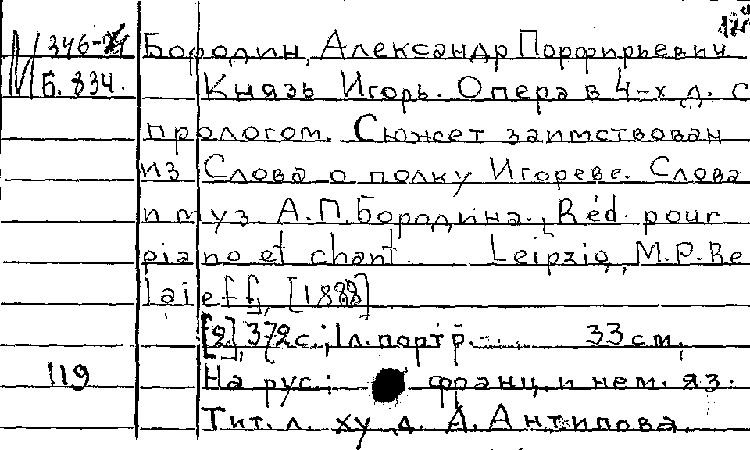 М 346- Бородин, Александр Порфирьевич
Б. 834. Князь Игорь. Опера в 4-х д. с
прологом. Сюжет заимствован
из Слова о полку Игореве. Слова
и муз А.П.Бородина., Réd. pour
piano et chant Leipzig, M.P.Be
laieff, [1888]
[2], 372с.; 1л.портр. 33 см.
119 На рус. франц. и нем. яз.
Тит. л. худ. А. Антипова.